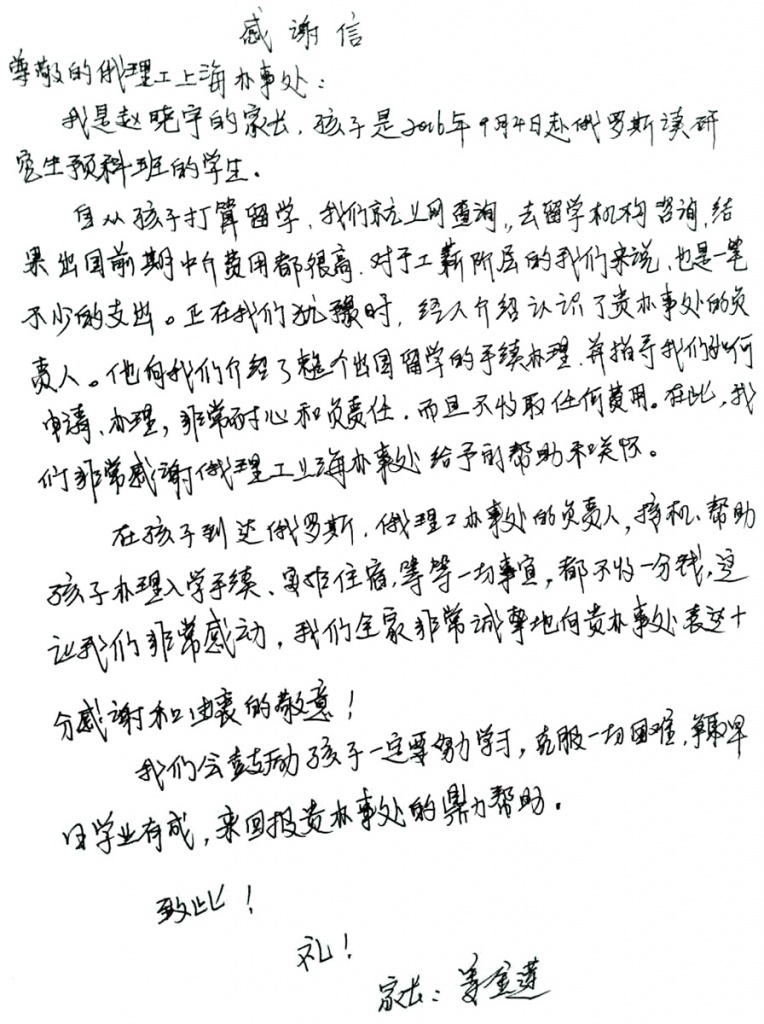 感谢信
尊敬的俄理工上海办事处：
我是赵晓宇的家长，孩子是2016年9月4日赴俄罗斯读研
究生预科班的学生。
自从孩子打算留学，我们就上网查询，去留学机构咨询，结
果出国前期中介费用都很高，对于工薪阶层的我们来说，也是一笔
不少的支出。正在我们犹豫时，经人介绍认识了贵办事处的负
责人。他向我们介绍了整个出国留学的手续办理，并指导我们如何
申请、办理，非常耐心和负责任，而且不收取任何费用。在此，我
们非常感谢俄理工上海办事处给予的帮助和关怀。
在孩子到达俄罗斯，俄理工办事处的负责人，接机、帮助
孩子办理入学手续、安排住宿，等等一切事宜，都不收一分钱，这
让我们非常感动，我们全家非常诚挚地向贵办事处表达十
分感谢和由衷的敬意！
我们会鼓励孩子一定要努力学习，克服一切困难，争取早
日学业有成，来回报贵办事处的鼎力帮助。
致此！
礼！
家长：姜金莲